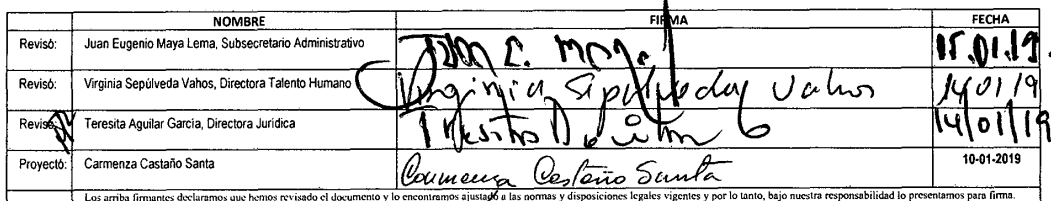 NOMBRE FIRMA FECHA
Revisó: Juan Eugenio Maya Lema, Subsecretario Administrativo Juan E. Maya L. 15.01.19.
Revisó: Virginia Sepúlveda Vahos, Directora Talento Humano Virginia Sepúlveda Vahos 14/01/19
Revisó: Teresita Aguilar García, Directora Jurídica 14/01/19
Proyectó: Carmenza Castaño Santa Carmenza Castaño Santa 10-01-2019
Los arriba firmantes declaramos que hemos revisado el documento y lo encontramos ajustado a las normas y disposiciones legales vigentes y por lo tanto, bajo nuestra responsabilidad lo presentamos para firma.